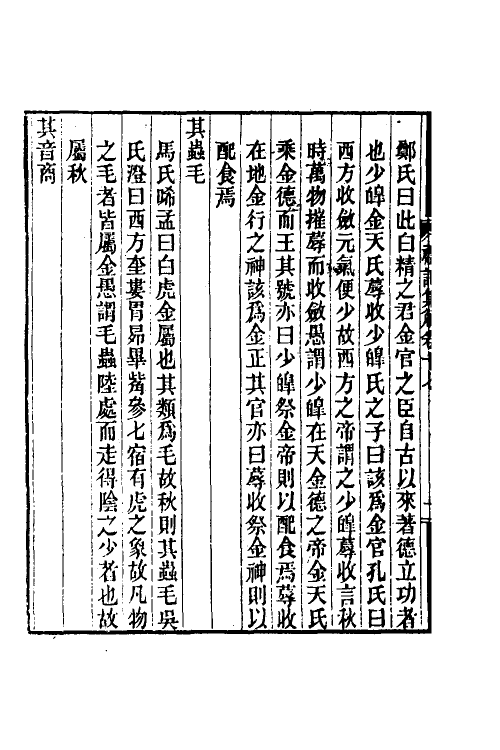 鄭氏曰此白精之君金官之臣自古以來著德立功者
也少皥金天氏蓐收少皥氏之子曰該爲金官孔氏曰
西方收斂元氣便少故西方之帝謂之少皥蓐收言秋
時萬物摧蓐而收斂愚謂少皥在天金德之帝金天氏
乘金德而王其號亦曰少皥祭金帝則以配食焉蓐收
在地金行之神該爲金正其官亦曰蓐收祭金神則以
配食焉
其蟲毛
馬氏晞孟曰白虎金屬也其類爲毛故秋則其蟲毛吳
氏澄曰西方奎婁胃昴畢觜參七宿有虎之象故凡物
之毛者皆屬金愚謂毛蟲陸處而走得陰之少者也故
屬秋
其音商